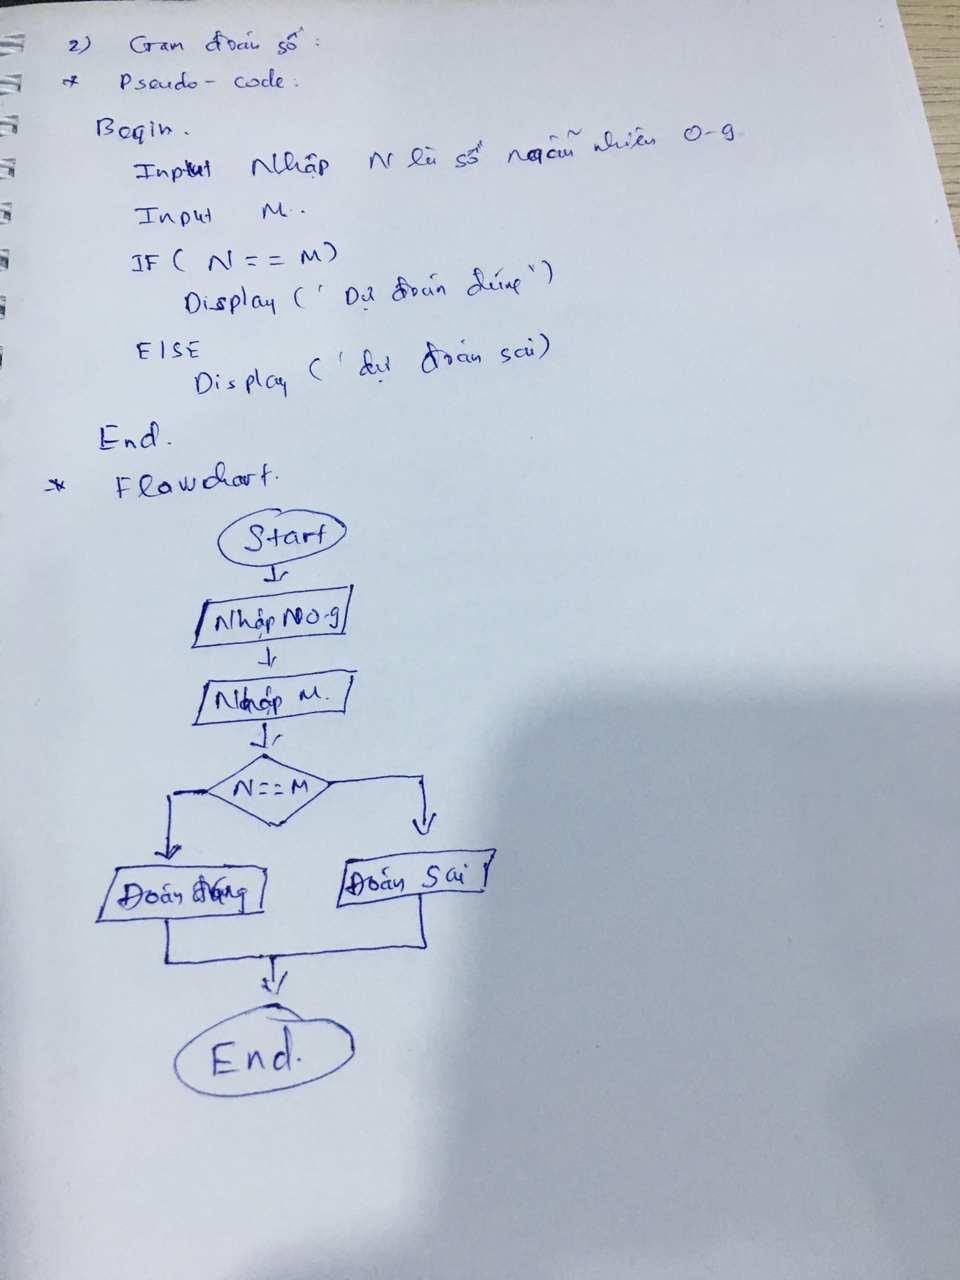 2) Gam đoán số :
* Pseudo - code :
Begin.
Input Nhập N là số ngẫu nhiên 0-9
Input M.
IF ( N == M)
Display (' Dự đoán đúng')
ElSE
Display (' dự đoán sai)
End.
* Flowchart.
Start
Nhập N 0-9
Nhập M.
N==M
Đoán đúng
Đoán Sai
End.